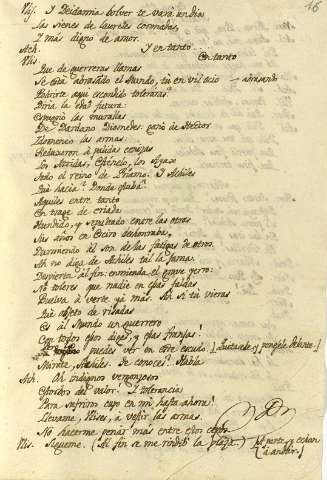 16
Ulis. Y Deidamia bolver te verá un dia
las sienes de laureles coronadas,
Y más digno de amor.
Ach. Y en tanto...
Ulis. En tanto
Que de guerreras llamas
Se está abrasado el Mundo, tú en vil ocio - abrasando
Podrirte aqui escondido tolerarás?
Diria la edad futura:
las murallas
De Dardano Diomedes: de Hector
Idomeneo las armas:
Reduxeron à pálida ceniza
los Atridas, Esténelo, los Ayax
Todo el reino de Priamo. Y Achiles
Qué hacia? Donde
Aquiles entre tanto
En trage de criada
Hundido, y sepultado entre las otras
Sus años en Sciro deshonraba,
Durmiendo al son de las fatigas de otros.
Ah no diga de Achiles tal la fama.
Despierta al fin: enmienda el grave yerro:
No toleres que nadie en esas faldas
Buelva à verte yá más. Ah si tú vieras
Qué objeto de risadas
Es al Mundo un guerrero
Con todos esos diges, y esas franjas!
puedes ver en este escudo. (Quitasele y ponesele delante.)
Mirate, Achiles. Te conoces? Habla.
Ach. Oh indignos vergonzosos
Estorbos del valor. Y tolerancia
Para sufriros cupo en mi hasta ahora!
Llevame, Ulises, à vestir las armas.
No hacerme penar más entre estos
Ulis. Sigueme. (Al fin se me rindió la plaza.) y echan à andar.)